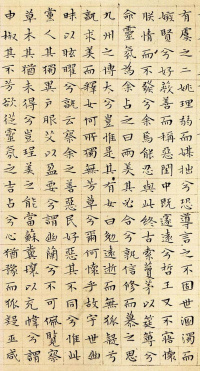 有虞之二姚理弱而媒拙兮恐導言之不固世溷濁而
嫉賢兮好蔽美而稱惡閨中既邃遠兮哲王又不寤懷
朕情而不發兮余焉能忍與此終古索藑茅以筳篿兮
命靈氛爲余占之曰兩美其必合兮孰信修而慕之思
九州之博大兮豈惟是其有女曰勉遠逝而無狐疑兮
孰求美而釋女何所獨無芳草兮爾何懷乎故宇世幽
昧以眩曜兮孰云察余之善惡民好惡其不同兮惟此
黨人其獨異戶服艾以盈要兮謂幽蘭其不可佩覽察
草木其猶未得兮豈珵美之能當蘇糞壤以充幃兮謂
申椒其不芳欲從靈氛之吉占兮心猶豫而狐疑巫咸